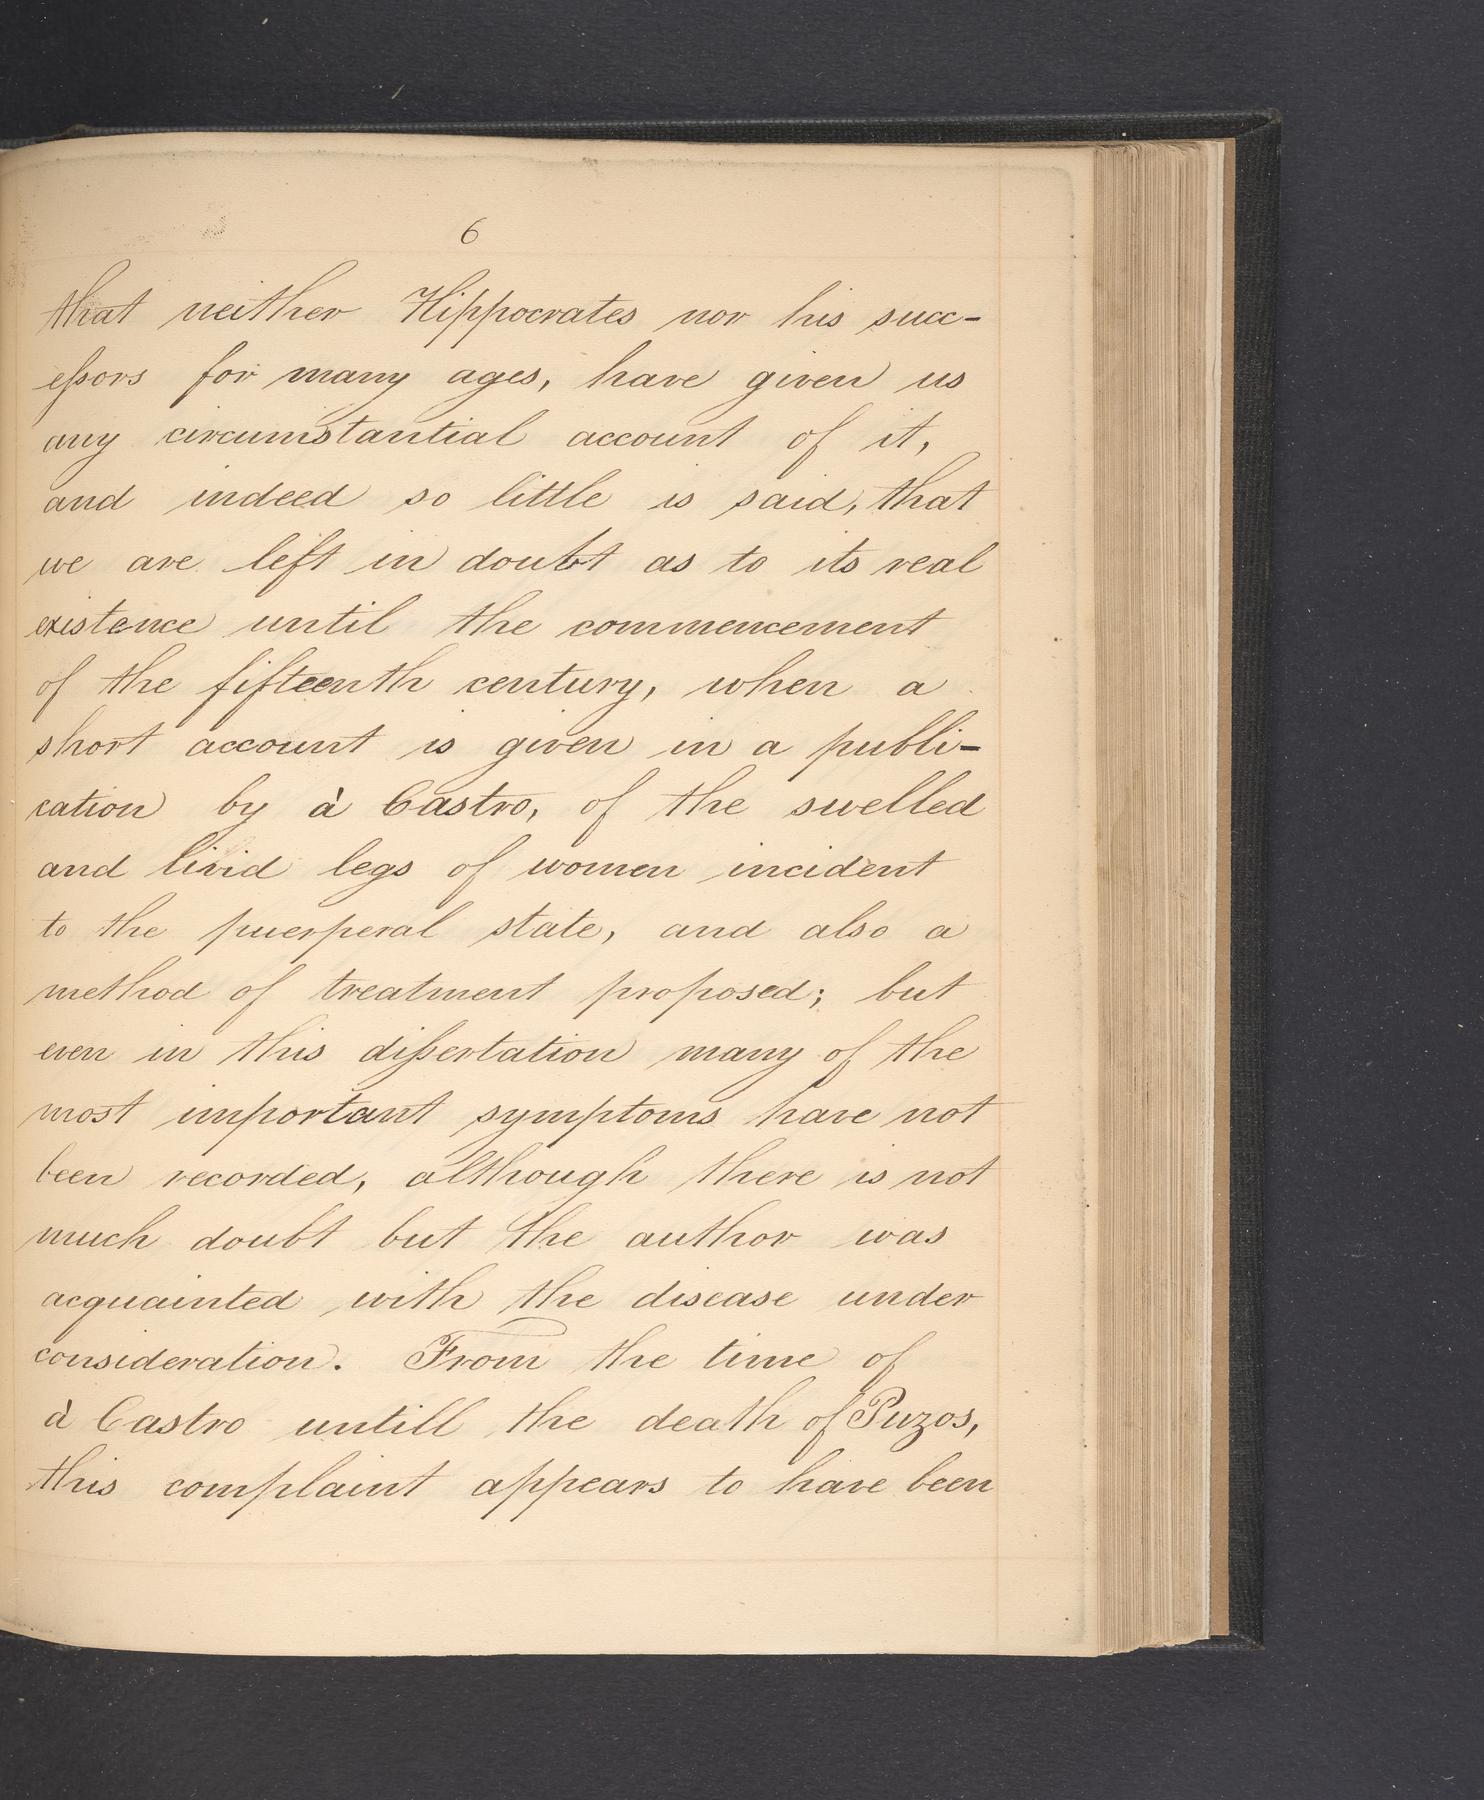 6
that neither Hippocrates nor his succ-
eſsors for many ages, have given us
any circumstantial account of it,
and indeed so little is said, that
we are left in doubt as to its real
existence until the commencement
of the fifteenth century, when a
short account is given in a publi-
cation by à Castro, of the swelled
and livid legs of women incident
to the puerperal state, and also a
method of treatment proposed; but
even in this diſsertation many of the
most important symptoms have not
been recorded, although there is not
much doubt but the author was
acquainted with the disease under
consideration. From the time of
à Castro untill the death of Puzos,
this complaint appears to have been